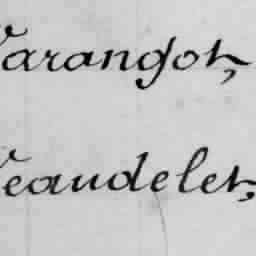 Varangot,
Veaudelet,